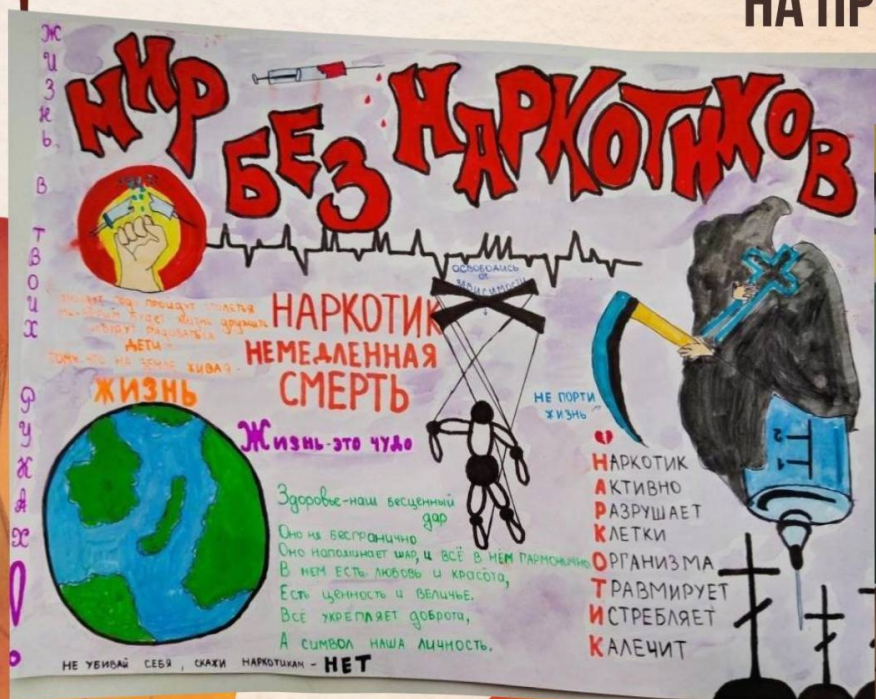 НА ПР
ЖИЗНЬ В ТВОИХ РУКАХ!
МИР БЕЗ НАРКОТИКОВ
ОСВОБОДИСЬ
ОТ
ЗАВИСИМОСТИ
год, пройдут столетья
будет
радоваться
ДЕТИ
ТОМУ, ЧТО НА ЗЕМЛЕ ЖИВАЯ -
ЖИЗНЬ
НАРКОТИК
НЕМЕДЛЕННАЯ
СМЕРТЬ
Жизнь-это чудо
НЕ ПОРТИ
ЖИЗНЬ
Здоровье-наш бесценный
дар
Оно не безгранично
Оно напоминает шар, и всё в нём гармонично.
В нем есть любовь и красота,
Есть ценность и величье.
Всё укрепляет доброта,
А символ наша личность.
НАРКОТИК
АКТИВНО
РАЗРУШАЕТ
КЛЕТКИ
ОРГАНИЗМА
ТРАВМИРУЕТ
ИСТРЕБЛЯЕТ
КАЛЕЧИТ
2
1
НЕ УБИВАЙ СЕБЯ, СКАЖИ НАРКОТИКАМ - НЕТ